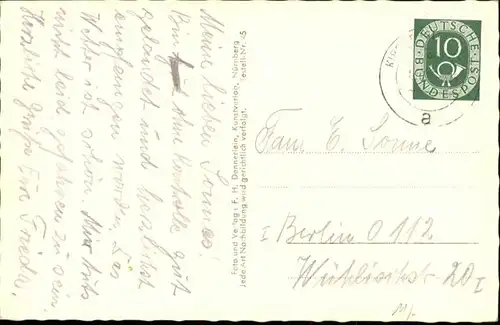 Meine lieben Sonnes!
Bin gut ohne Kontrolle gut
gelandet und herzlichst
empfangen worden. Das
Wetter ist schön. Mir tuts
nicht leid, gefahren zu sein.
Herzliche Grüße Eure Frieda.
Foto und Verlag: F. H. Donnerlein, Kunstverlag, Nürnberg
Jede Art Nachbildung wird gerichtlich verfolgt. Bestell-Nr. 45
DEUTSCHE
10
BUNDESPOST
a
Fam. E. Sonne
I Berlin O 112
Wühlischstr. 20 I